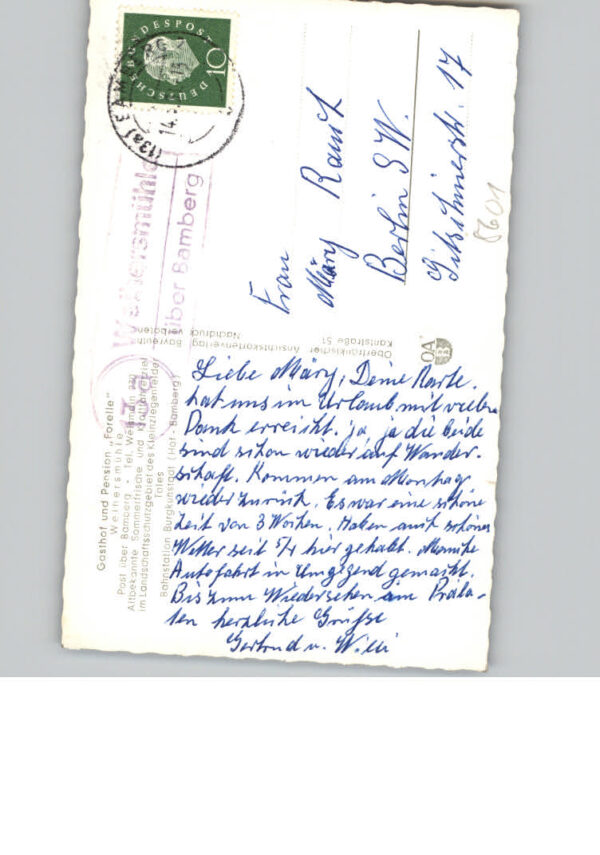 DEUTSCHE BUNDESPOST
10
(13a) BAMBERG 2
14.
Weihersmühle
über Bamberg
Frau
Märy Rauch
Berlin SW.
Gitschinerstr. 17
5601
Oberfränkischer Ansichtskartenverlag Bayreuth
Kantstraße 51 Nachdruck verboten
OA
Gasthof und Pension „Forelle"
Weihersmühle
Post über Bamberg - Tel. Weismain 220
Altbekannte Sommerfrische und
im Landschaftsschutzgebiet des Kleinziegenfelder
Tales
Bahnstation Burgkunstadt (Hof - Bamberg)
Liebe Märy, Deine Karte
hat uns im Urlaub mit vielen
Dank erreicht. ja ja die beide
sind schon wieder auf Wander-
schaft. Kommen am Montag
wieder zurück. Es war eine schöne
Zeit von 3 Wochen. Haben auch schönes
Wetter seit 5/7 hier gehabt. Manche
Autofahrt in Umgegend gemacht.
Bis zum Wiedersehen am Präla-
ten herzliche Grüße
Gertrud u. Willi